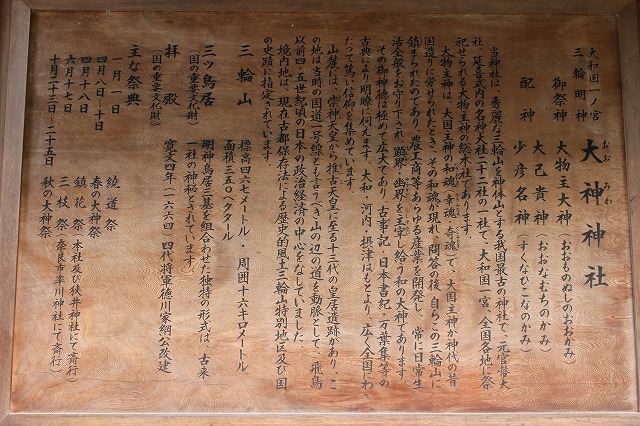 大和国一ノ宮
三輪明神
大神神社
おお みわ
御祭神 大物主大神(おおものぬしのおおかみ)
配神 大己貴神(おおなむちのかみ)
少彦名神(すくなひこなのかみ)
当神社は、秀麗な三輪山を神体山とする我国最古の神社で、元官幣大
社・延喜式内の名神大社二十二社の一社で、大和国一宮、全国各地に祭
祀せられる大物主神の総本社であります。
大物主神は、大国主神の和魂(幸魂、奇魂)で、大国主神が神代の昔、
国造りに労せられたとき、その和魂が現れ、問答の後、自らこの三輪山に
鎮まられたのであり、農工商等あらゆる産業を開発し、常に日常生
活全般をお守り下され、顕界・幽界を主宰し給う和の大神であります
その御神徳は極めて広大であり、古事記、日本書紀・万葉集等の
古典により明瞭に伺えます。大和 河内・摂津はもとより、広く全国にわ
たって篤い信仰を集めています。
山麓には、崇神天皇から推古天皇に至る十三代の皇居遺跡があり、こ
の地は当時の国道一号線とも言うべき山の辺の道を動脈として、飛鳥
以前四・五世紀頃の日本の政治経済の中心をなしていました
境内地は、現在古都保存法による歴史的風土三輪山特別地区及び国
の史蹟に指定されています。
三輪山 標高四六七メートル・周囲十六キロメートル
面積三五〇ヘクタール
三ツ鳥居 明神鳥居三基を組合わせた独特の形式は、古来
(国の重要文化財) 一社の神秘とされています。
拝殿 寛文四年(一六六四)四代将軍徳川家綱公改建
(国の重要文化財)
主な祭典
一月一日 繞道祭
四月八日〜十日 春の大神祭
四月十八日 鎮花祭(本社及び狭井神社にて斎行)
六月十七日 三枝祭(奈良市率川神社にて斎行)
十月二十三日〜二十五日 秋の大神祭